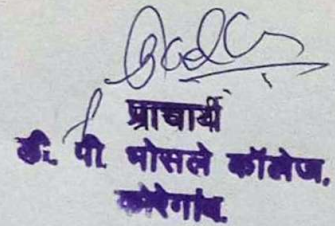 प्राचार्य
डी. पी. भोसले कॉलेज,
कोरेगांव.